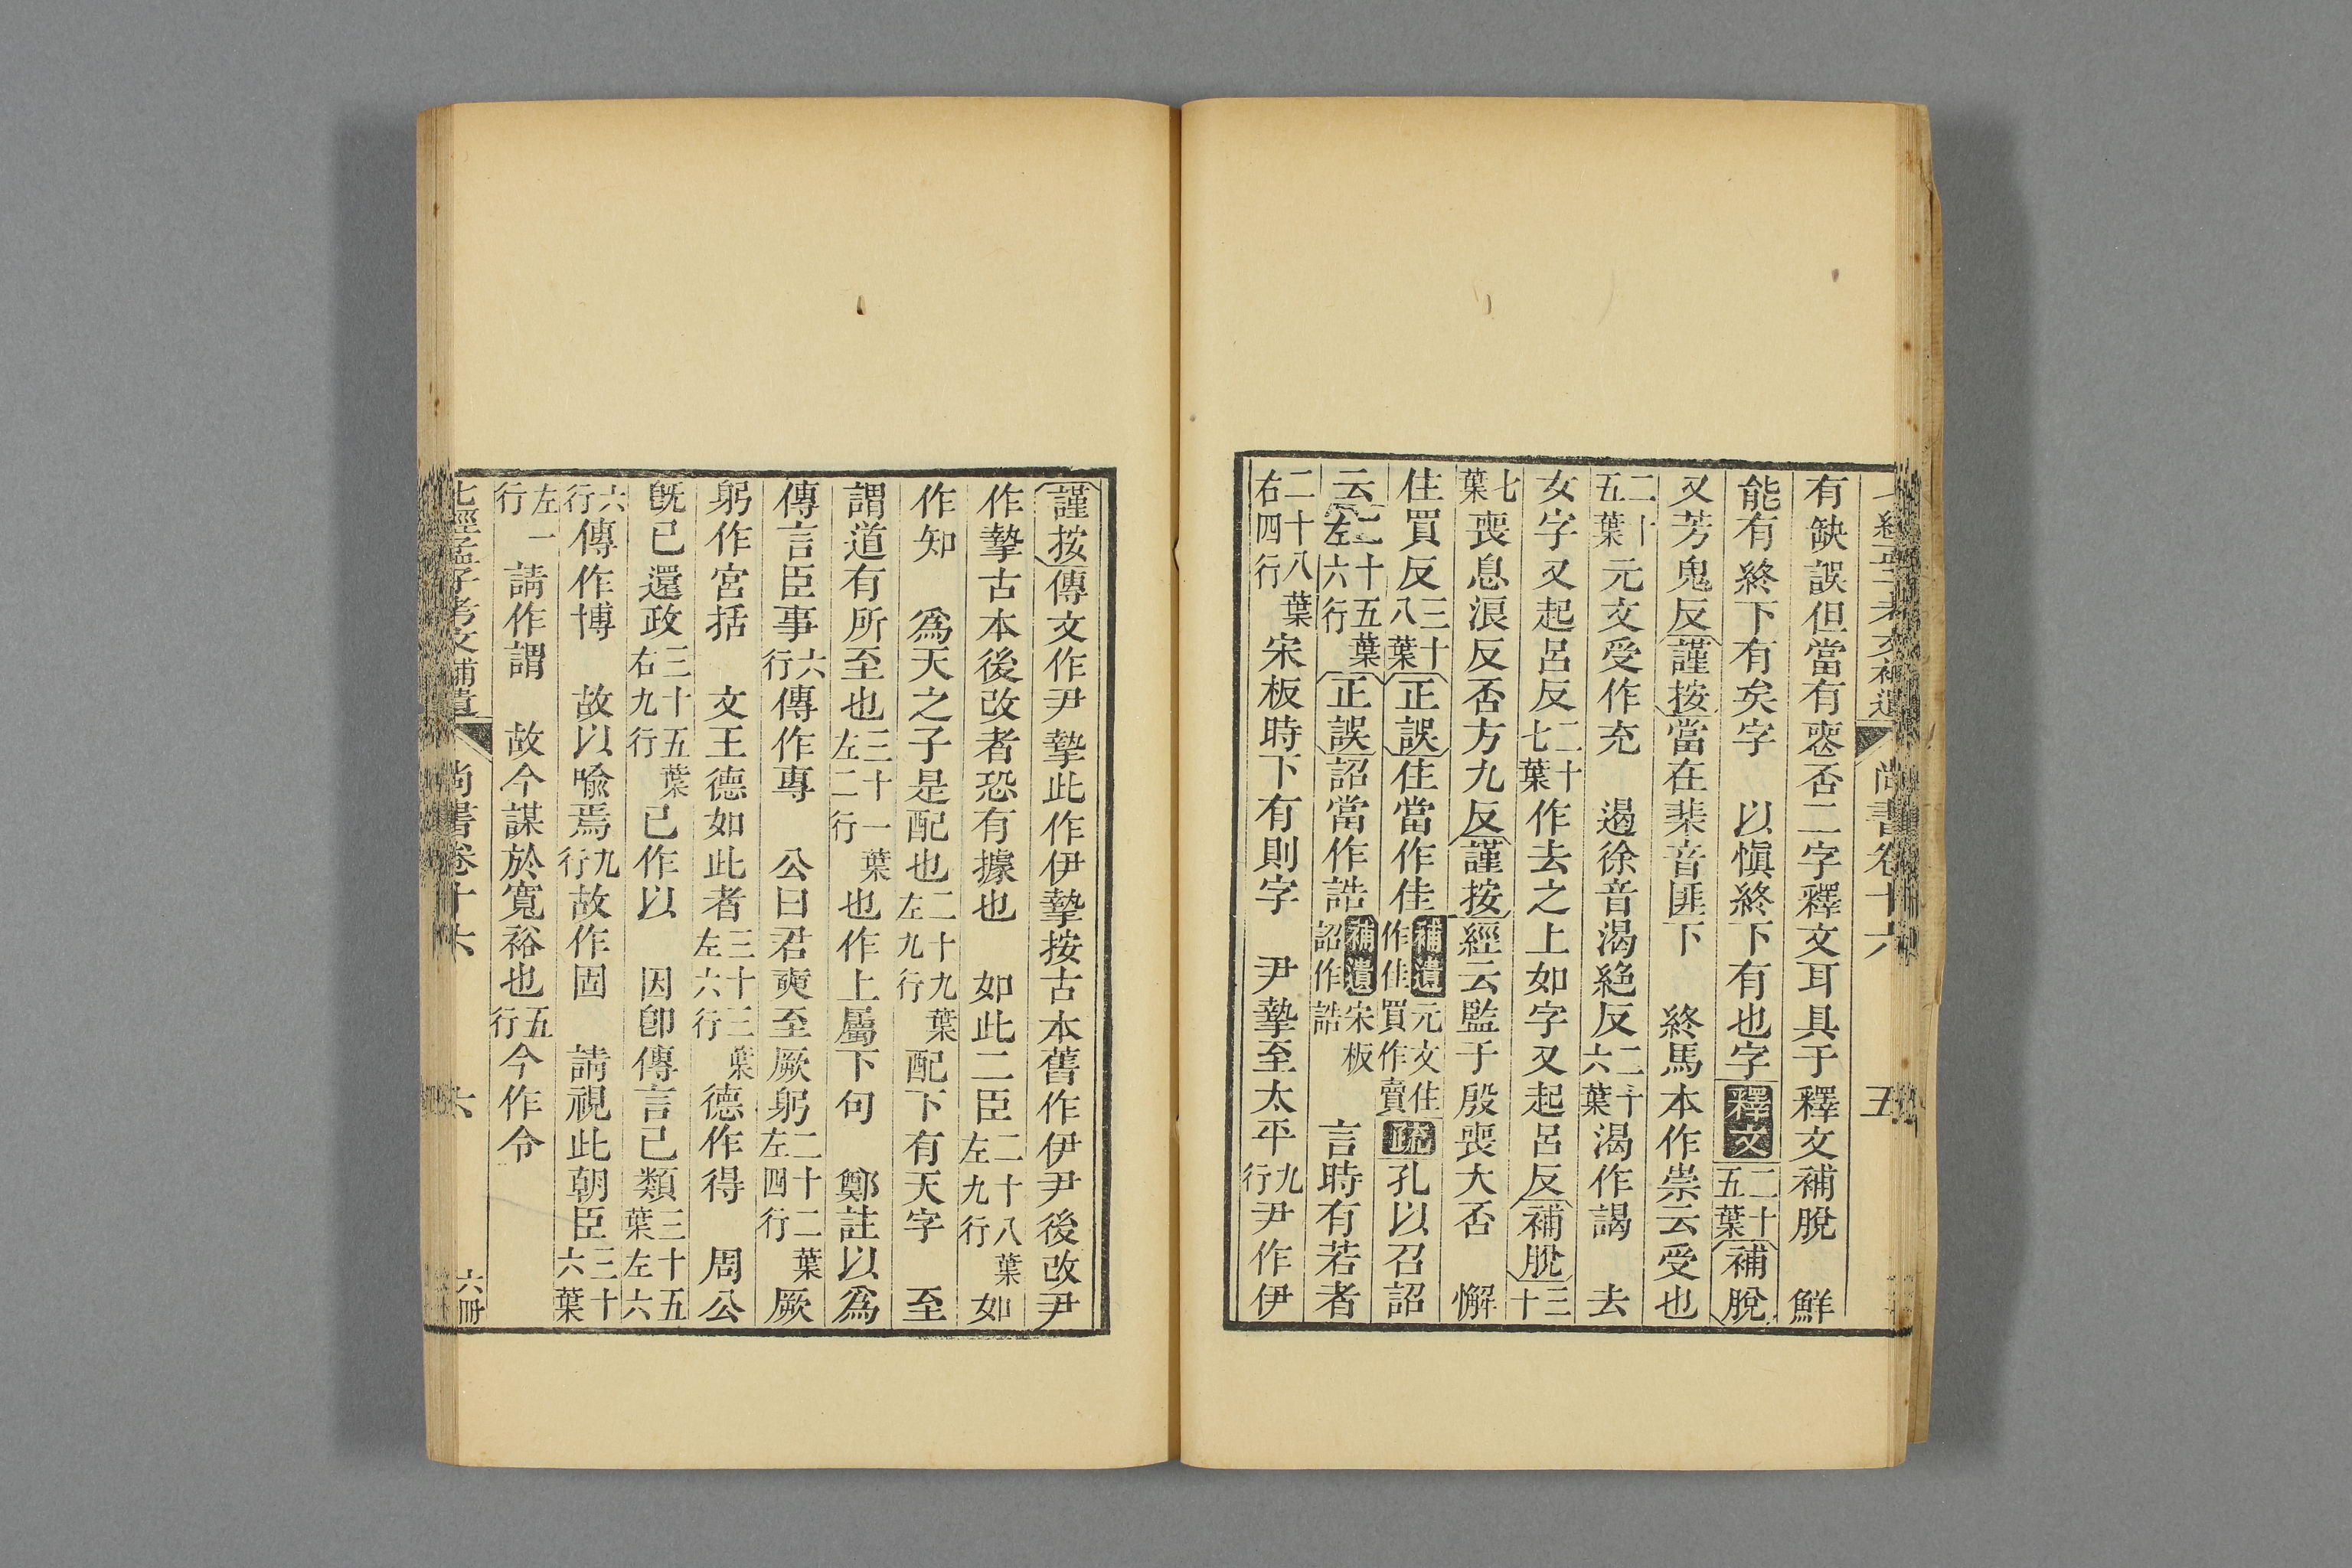 七經孟子考文補遺 尚書卷十六 五
有缺誤但當有喪否二字釋文耳具于釋文補脫 鮮
能有終下有矣字 以愼終下有也字釋文二十五葉補脫
又芳鬼反謹按當在棐音匪下 終馬本作崇云受也
二十五葉元文受作充 遏徐音渴絶反二十六葉渴作謁 去
女字又起呂反二十七葉作去之上如字又起呂反補脫三十
七葉喪息浪反否方九反謹按經云監于殷喪大否 懈
住買反三十八葉正誤住當作佳補遺元文住作佳買作賣疏孔以召詔
云二十五葉左六行正誤詔當作誥補遺宋板詔作誥 言時有若者
二十八葉右四行宋板時下有則字 尹摯至太平九行尹作伊
謹按傳文作尹摯此作伊摯按古本舊作伊尹後改尹
作摯古本後改者恐有據也 如此二臣二十八葉左九行如
作知 爲天之子是配也二十九葉左九行配下有天字 至
謂道有所至也三十一葉左二行也作上屬下句 鄭註以爲
傳言臣事六行傳作專 公曰君奭至厥躬二十二葉左四行厥
躬作宮括 文王德如此者三十三葉左六行德作得 周公
旣已還政三十五葉右九行已作以 因卽傳言已類三十五葉左六
六行傳作博 故以喩焉九行故作固 請視此朝臣三十六葉
左一行請作謂 故今謀於寬裕也五行今作令
七經孟子考文補遺 尚書卷十六 六 六冊